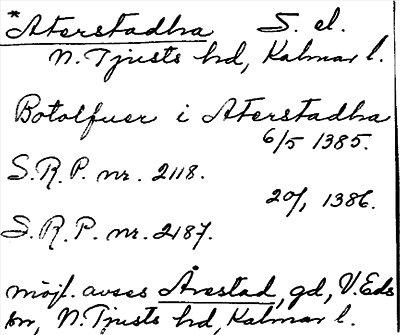 *Aterstadha S. el.
N. Tjusts hd, Kalmar l.
Botolfuer i Aterstadha
6/5 1385.
S.R.P. nr. 2118.
20/1 1386.
S.R.P. nr. 2187.
möjl. avses Årestad, gd, V. Eds
sn, N. Tjusts hd, Kalmar l.